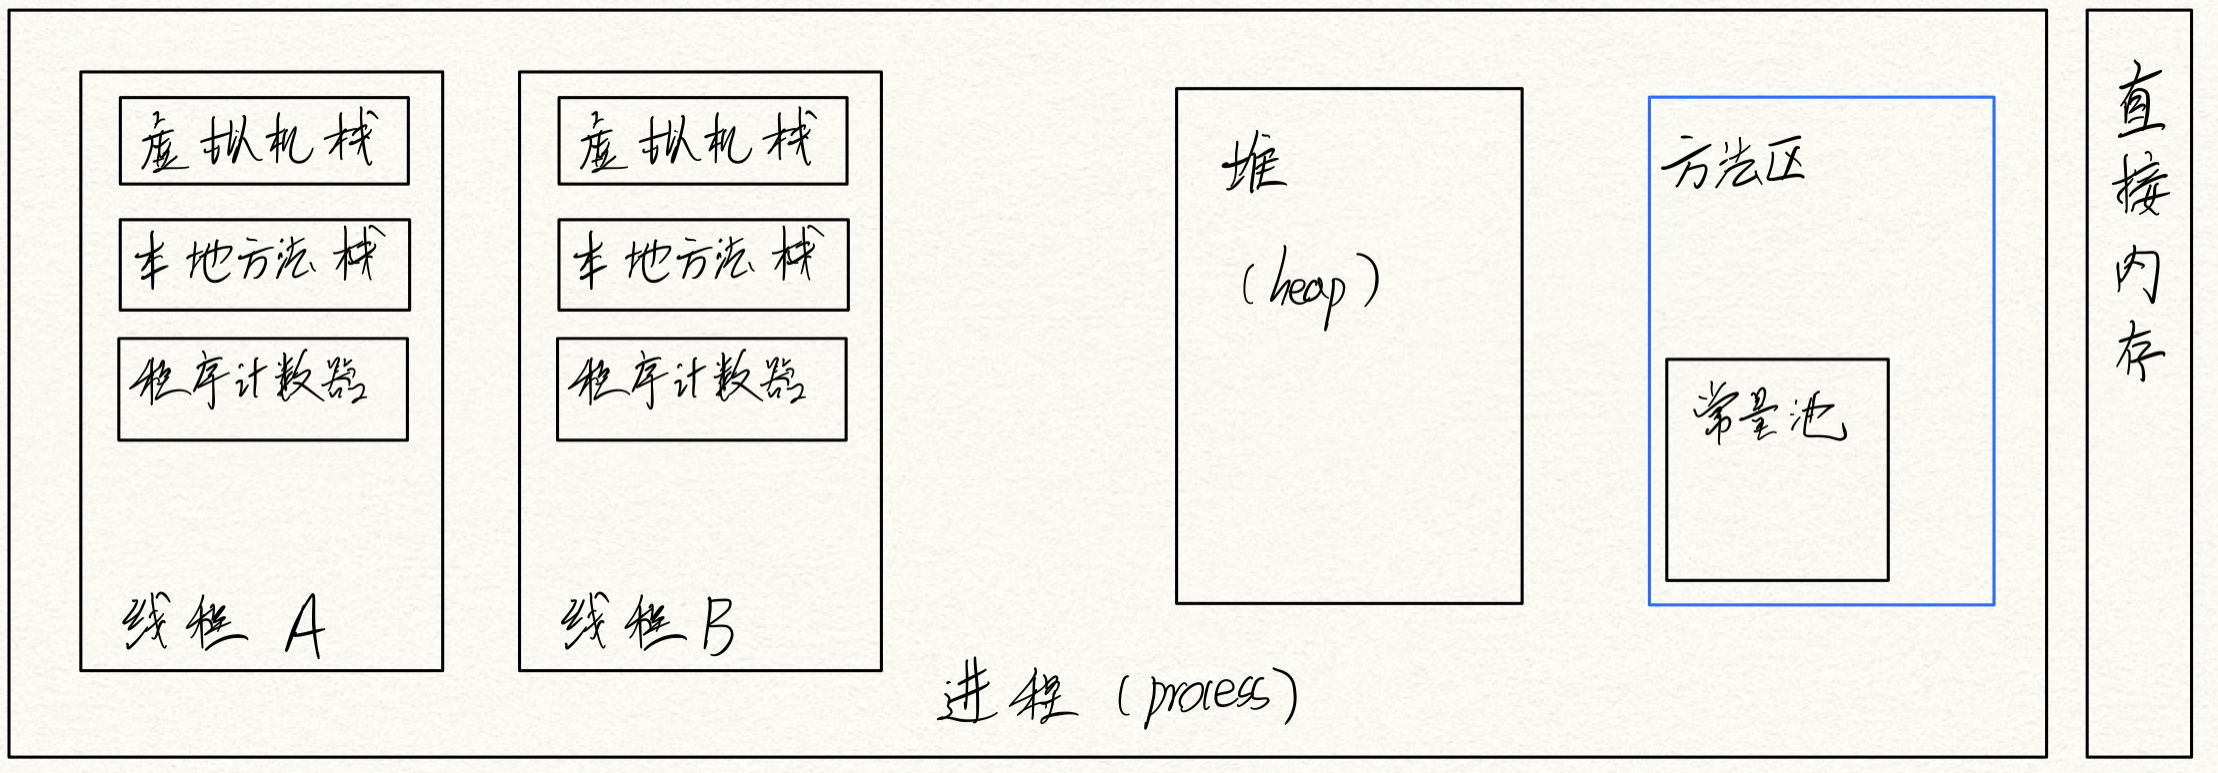 虚拟机栈
本地方法栈
程序计数器
线程 A
虚拟机栈
本地方法栈
程序计数器
线程 B
堆
(heap)
方法区
常量池
进程 (process)
直接内存